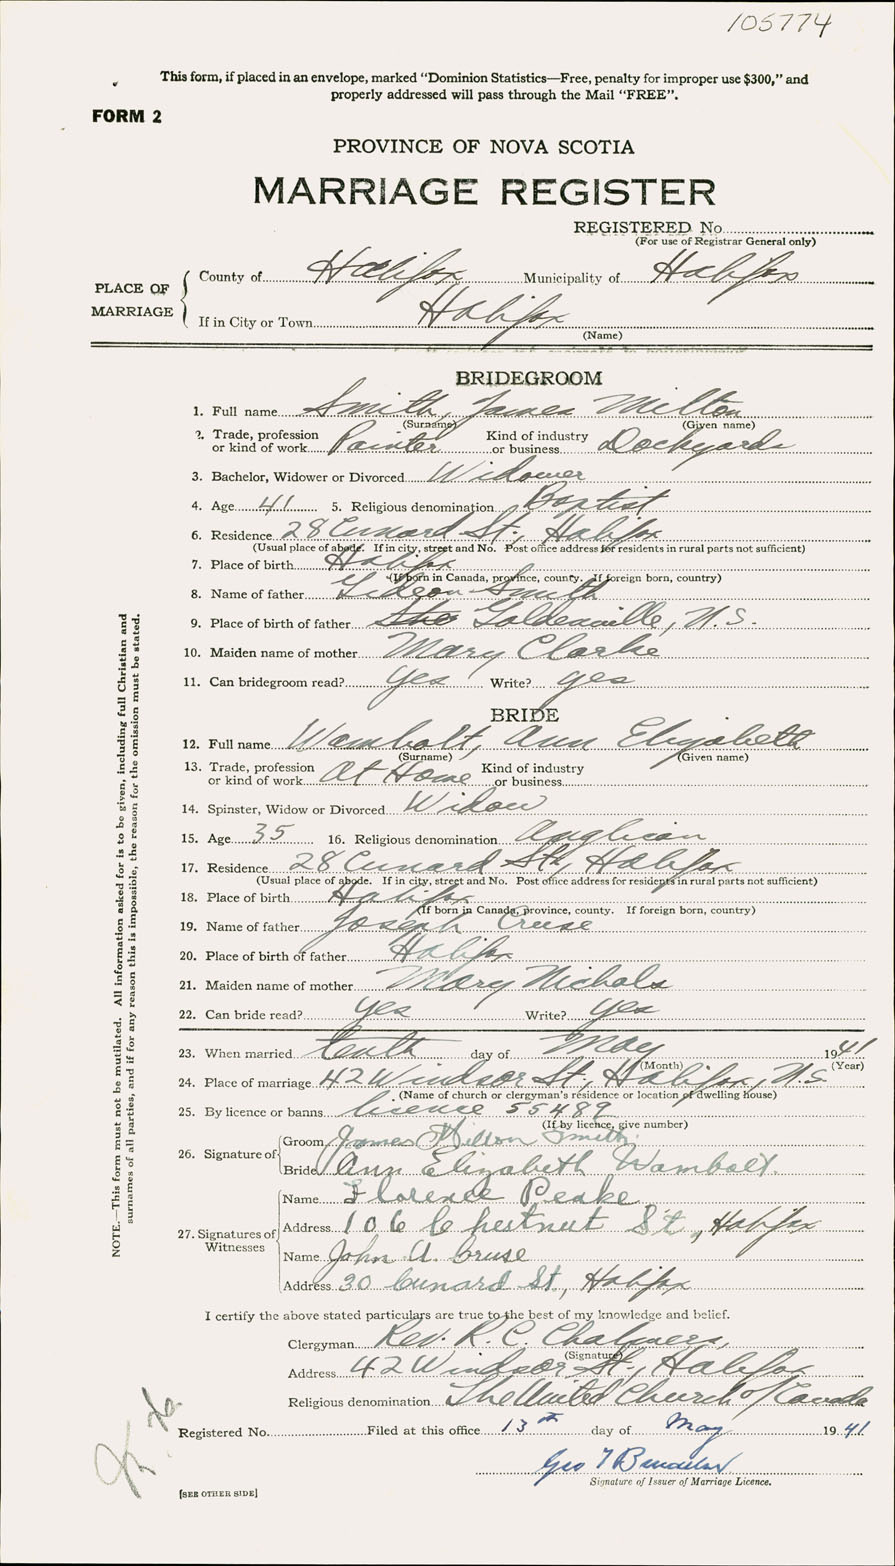 105774
This form, if placed in an envelope, marked "Dominion Statistics—Free, penalty for improper use $300," and
properly addressed will pass through the Mail "FREE".
FORM 2
PROVINCE OF NOVA SCOTIA
MARRIAGE REGISTER
REGISTERED No.
(For use of Registrar General only)
PLACE OF MARRIAGE
County of Halifax Municipality of Halifax
If in City or Town Halifax
(Name)
BRIDEGROOM
1. Full name Smith, James Milton
(Surname) (Given name)
2. Trade, profession or kind of work Painter Kind of industry or business Dockyards
3. Bachelor, Widower or Divorced Widower
4. Age 41 5. Religious denomination Baptist
6. Residence 28 Cunard St., Halifax
(Usual place of abode. If in city, street and No. Post office address for residents in rural parts not sufficient)
7. Place of birth Halifax
(If born in Canada, province, county. If foreign born, country)
8. Name of father Gideon Smith
9. Place of birth of father Goldenville, N.S.
10. Maiden name of mother Mary Clarke
11. Can bridegroom read? yes Write? yes
BRIDE
12. Full name Wambolt, Ann Elizabeth
(Surname) (Given name)
13. Trade, profession or kind of work At Home Kind of industry or business
14. Spinster, Widow or Divorced Widow
15. Age 35 16. Religious denomination Anglican
17. Residence 28 Cunard St., Halifax
(Usual place of abode. If in city, street and No. Post office address for residents in rural parts not sufficient)
18. Place of birth Halifax
(If born in Canada, province, county. If foreign born, country)
19. Name of father Joseph Cruse
20. Place of birth of father Halifax
21. Maiden name of mother Mary Nichols
22. Can bride read? yes Write? yes
23. When married tenth day of May 1941
(Month) (Year)
24. Place of marriage 42 Windsor St., Halifax, N.S.
(Name of church or clergyman's residence or location of dwelling house)
25. By licence or banns licence 55489
(If by licence, give number)
26. Signature of
Groom James Milton Smith
Bride Ann Elizabeth Wambolt.
27. Signatures of Witnesses
Name Florence Peake
Address 106 Chestnut St., Halifax
Name John A. Cruse
Address 30 Cunard St., Halifax
I certify the above stated particulars are true to the best of my knowledge and belief.
Clergyman Rev. R. C. Chalmers,
(Signature)
Address 42 Windsor St., Halifax
Religious denomination The United Church of Canada
Registered No. Filed at this office 13th day of May 1941
Geo
Signature of Issuer of Marriage Licence.
[SEE OTHER SIDE]
NOTE.—This form must not be mutilated. All information asked for is to be given, including full Christian and
surnames of all parties, and if for any reason this is impossible, the reason for the omission must be stated.